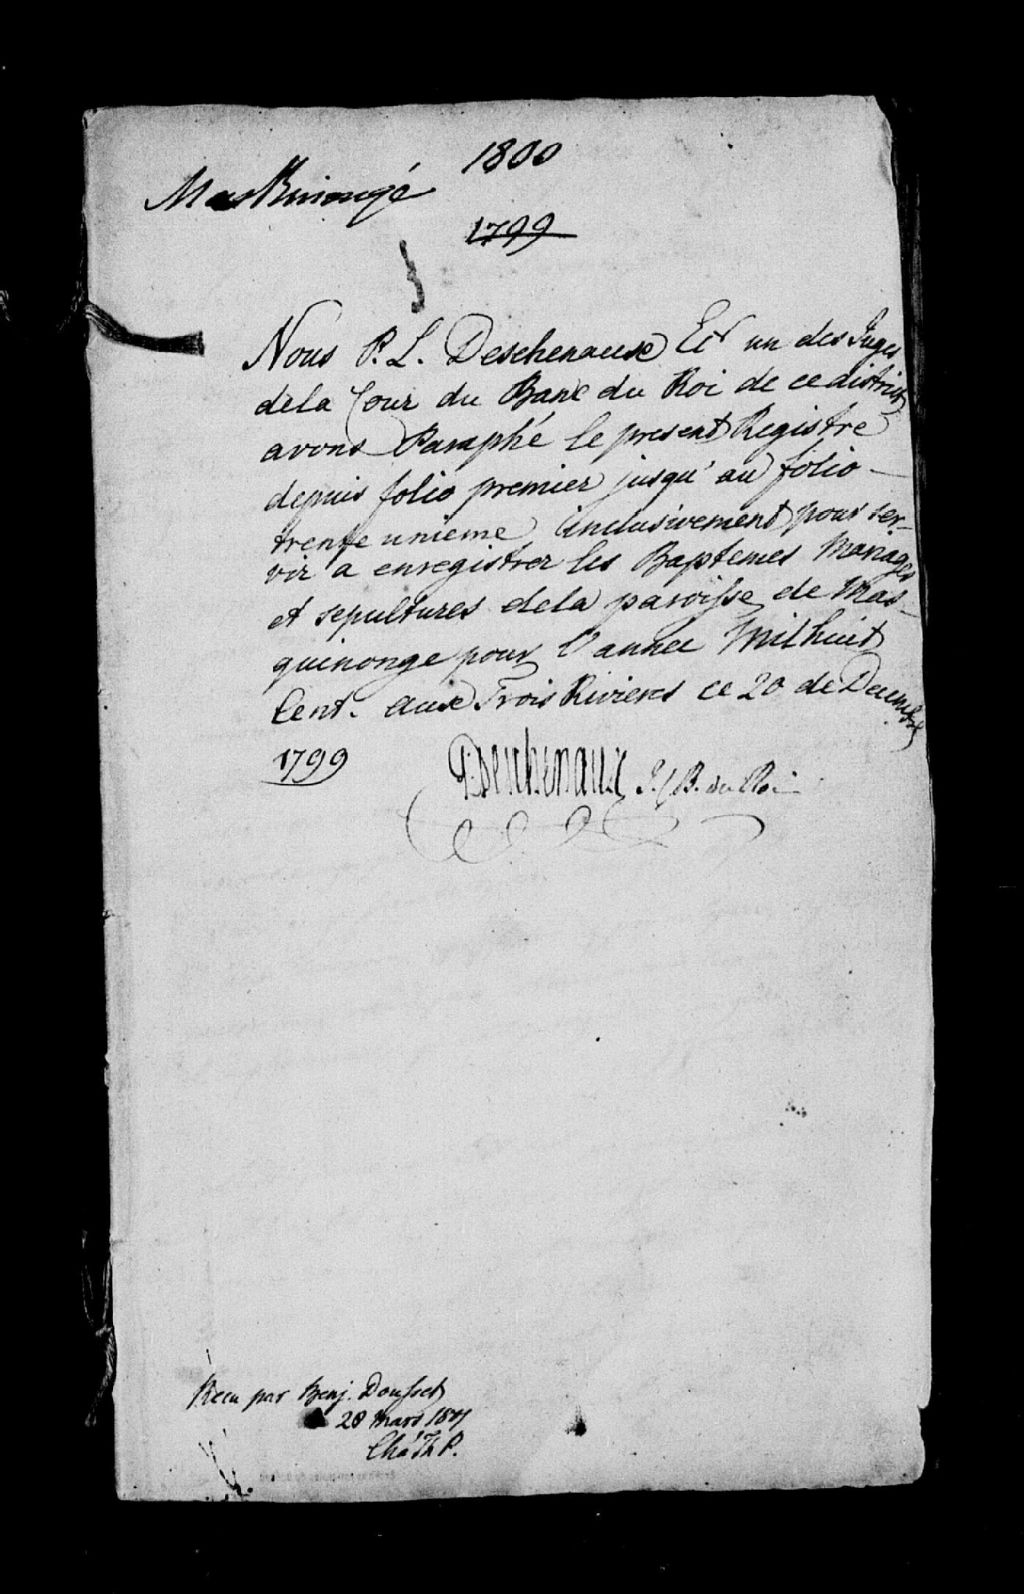 1800
Maskinongé
1799
Nous P. L. Deschenaux Ecr un des Juges
dela Cour du Banc du Roi de ce district
avons Paraphé le present Registre
depuis folio premier jusqu'au folio
trente unieme inclusivement pour ser-
vir a enregistrer les Baptemes Mariages
et sepultures dela paroisse de Mas-
quinonge pour l'année Mil huit
Cent. Aux Trois Rivieres ce 20 de Decembre
1799
P. L. Deschenaux J. C. B. du Roi
Recu par Benj. Doufset
28 mars 1801